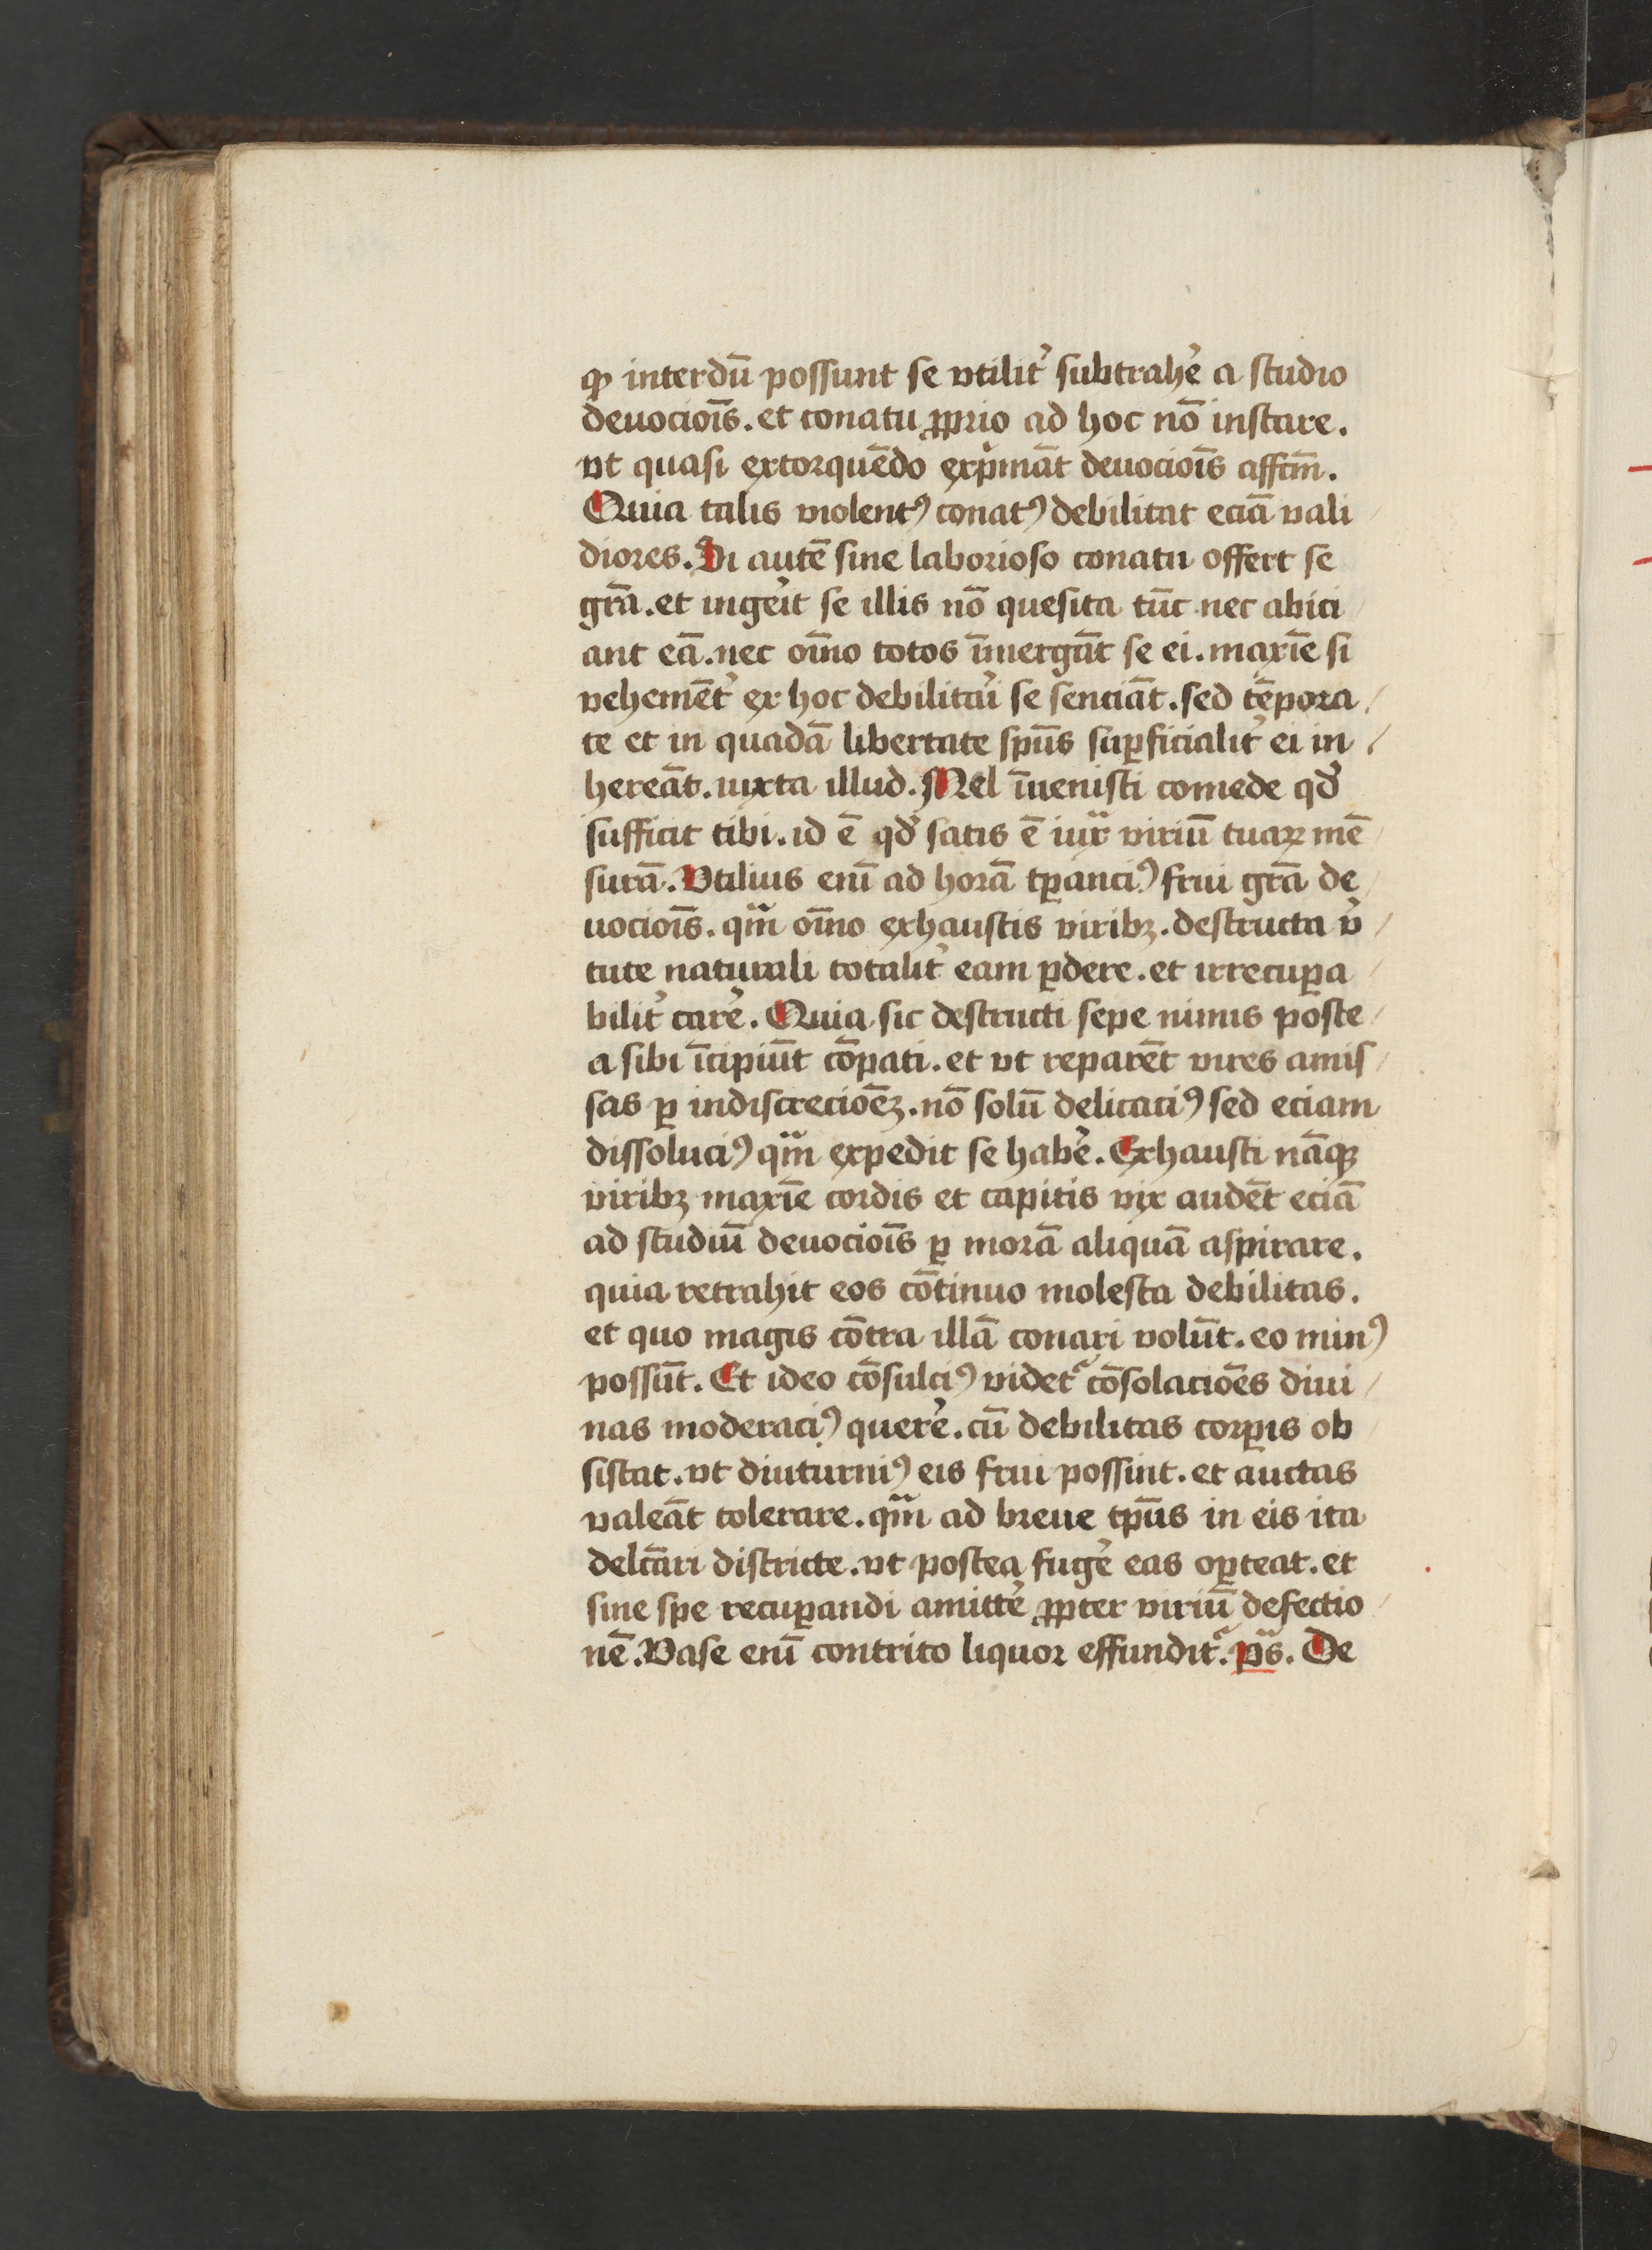 ꝙ interdū possunt se vtilit᷒ subtrah᷒e a studio
deuocioīs. et conatu ꝓprio ad hoc nō instare.
vt quasi extorquēdo expͥmāt deuocioīs affc̄m.
Quia talis violentꝰ conatꝰ debilitat eciā vali
diores. Si autē sine laborioso conatu offert se
grā. et inger᷒it se illis nō quesita tūc nec abici
ant eā. nec oīno totos īmergāt se ei. maxīe si
vehemēt᷒ ex hoc debilitari se senciāt. sed tēpora /
te et in quadā libertate spūs suꝑficialit᷒ ei in /
hereāt. iuxta illud. Mel īuenisti comede qd᷒
sufficit tibi. id ē qd᷒ satis ē iuxͣ viriū tuaꝝ mē
surā. Vtilius enī ad horā tꝑanciꝰ frui grā de
uocioīs. qͣm oīno exhaustis viribꝫ. destructa v᷒
tute naturali totalit᷒ eam ꝑdere. et irrecuꝑa
bilit᷒ car᷒e. Quia sic destructi sepe nimis poste
a sibi īcipiūt cōpati. et vt reparēt vires amis
sas ꝑ indiscrecionēꝫ. nō solū delicaciꝰ sed eciam
dissoluciꝰ qͣm expedit se hab᷒e. Exhausti nāqꝫ
viribꝫ maxīe cordis et capitis vix audēt eciā
ad studiū deuocioīs ꝑ morā aliquā aspirare.
quia retrahit eos cōtinuo molesta debilitas.
et quo magis cōtra illā conari volūt. eo minꝰ
possūt. Et ideo cōsulciꝰ videt᷑ cōsolaciōes diui /
nas moderaciꝰ quer᷒e. cū debilitas corꝑis ob
sistat. vt diuturniꝰ eis frui possint. et auctas
valeāt tolerare. qͣm ad breue tp̄us in eis ita
delc̄ari districte. vt postea fug᷒e eas oꝑteat. et
sine spe recuꝑandi amitt᷒e ꝓpter viriū defectio
nē. Vase enī contrito liquor effundit᷑. pͣs. De